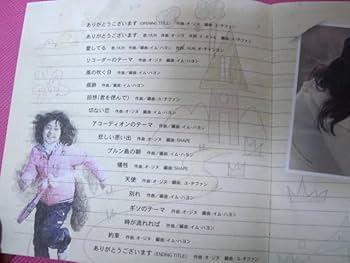 ありがとうございます (OPENING TITLE) 作曲:オ・ジヌ 編曲:ユ・テファン
ありがとうございます 作曲:オ・ジヌ
愛してる
リコーダーのテーマ 作曲:オ・ジヌ 編曲:イム・ハヨン
風の吹く日 作曲/編曲:イム・ハヨン
痕跡 作曲/編曲:イム・ハヨン
回想(君を偲んで) 作曲/編曲:ユ・テファン
切ない恋 作曲:オ・ジヌ 編曲:イム・ハヨン
アコーディオンのテーマ 作曲:オ・ジヌ 編曲:イム・ハヨン
悲しい思い出 作曲:オ・ジヌ 編曲:SHAPE
プルン島の朝 作曲/編曲:イム・ハヨン
犠牲 作曲:オ・ジヌ 編曲:SHAPE
天使 作曲:オ・ジヌ 編曲:ユ・テファン
別れ 作曲/編曲:イム・ハヨン
ギソのテーマ 作曲:オ・ジヌ 編曲:イム・ハヨン
時が流れれば 作曲:オ・ジヌ 編曲:イム・ハヨン
約束 作曲:オ・ジヌ 編曲:イム・ハヨン
ありがとうございます (ENDING TITLE) 作曲:オ・ジヌ 編曲:ユ・テファン